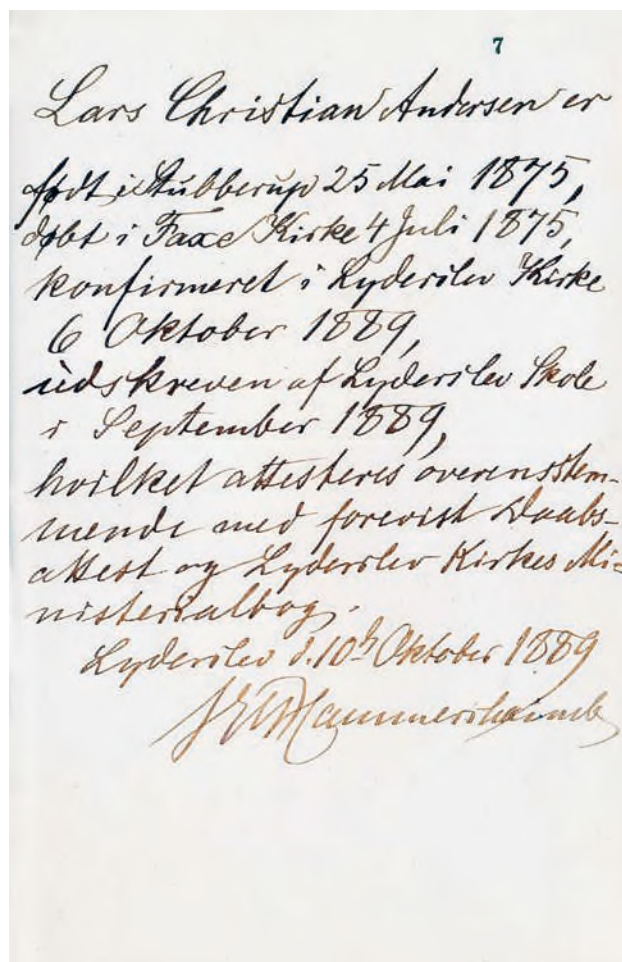 7
Lars Christian Andersen er
født i Stubberup 25 Mai 1875,
døbt i Faxe Kirke 4 Juli 1875,
konfirmeret i Lyderslev Kirke
6 Oktober 1889,
udskreven af Lyderslev Skole
i September 1889,
hvilket attesteres overensstem-
mende med forevist Daabs-
attest og Lyderslev Kirkes Mi-
nisterialbog.
Lyderslev d. 10d Oktober 1889
Hammershaimb